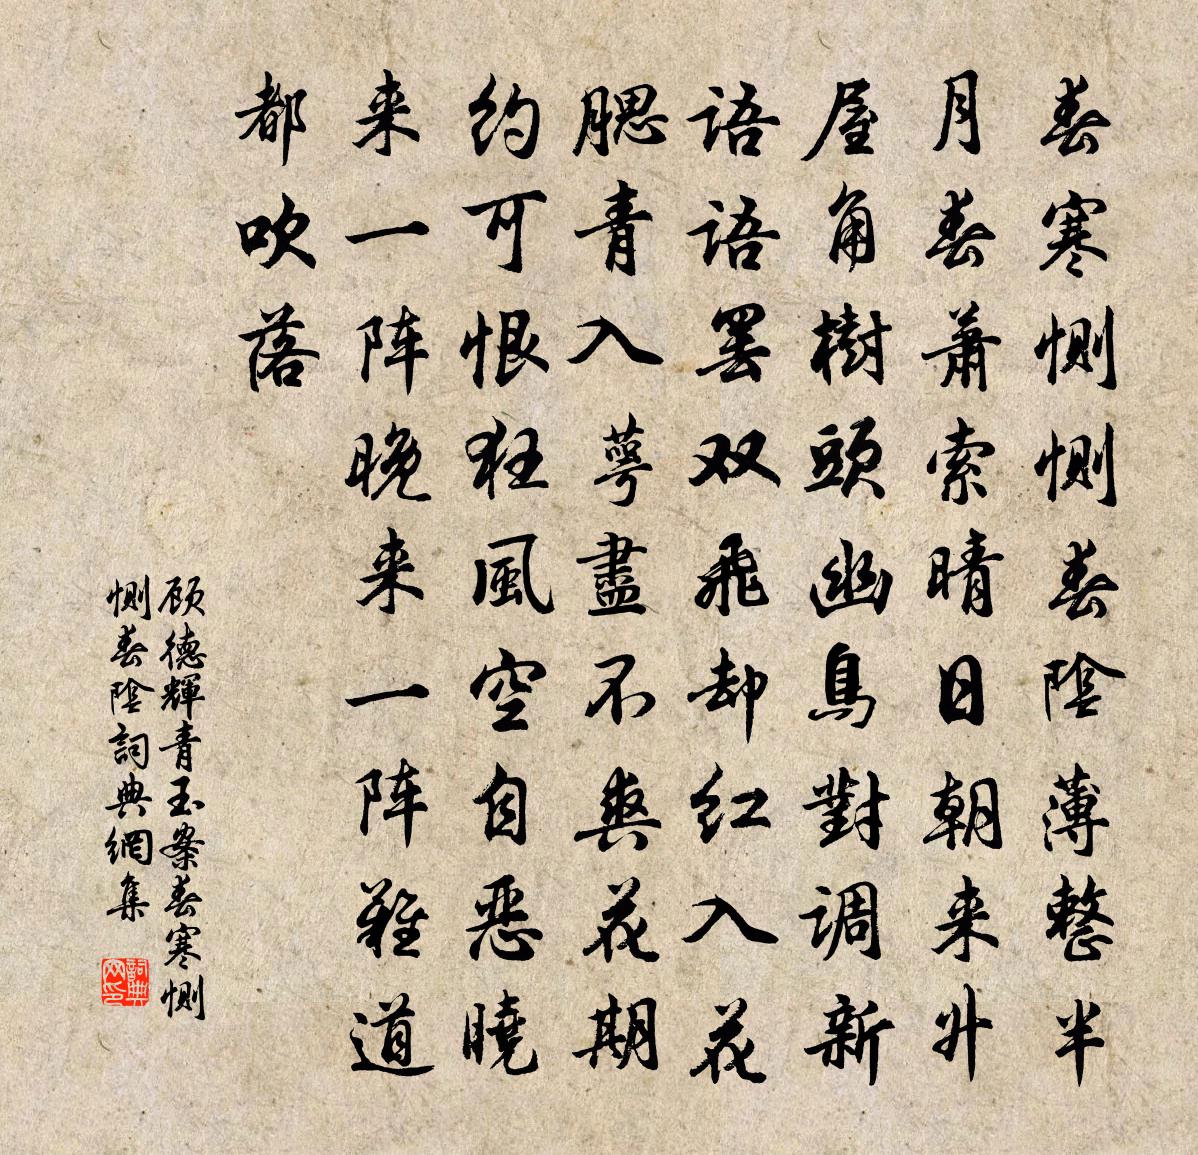 春寒恻恻春陰薄整半
月春萧索晴日朝来升
屋角樹頭幽鳥對调新
语语罢双飛却红入花
腮青入萼盡不爽花期
约可恨狂風空自恶曉
来一阵晚来一阵难道
都吹落
顾德輝青玉案春寒恻
恻春陰詞典網集
詞典网印